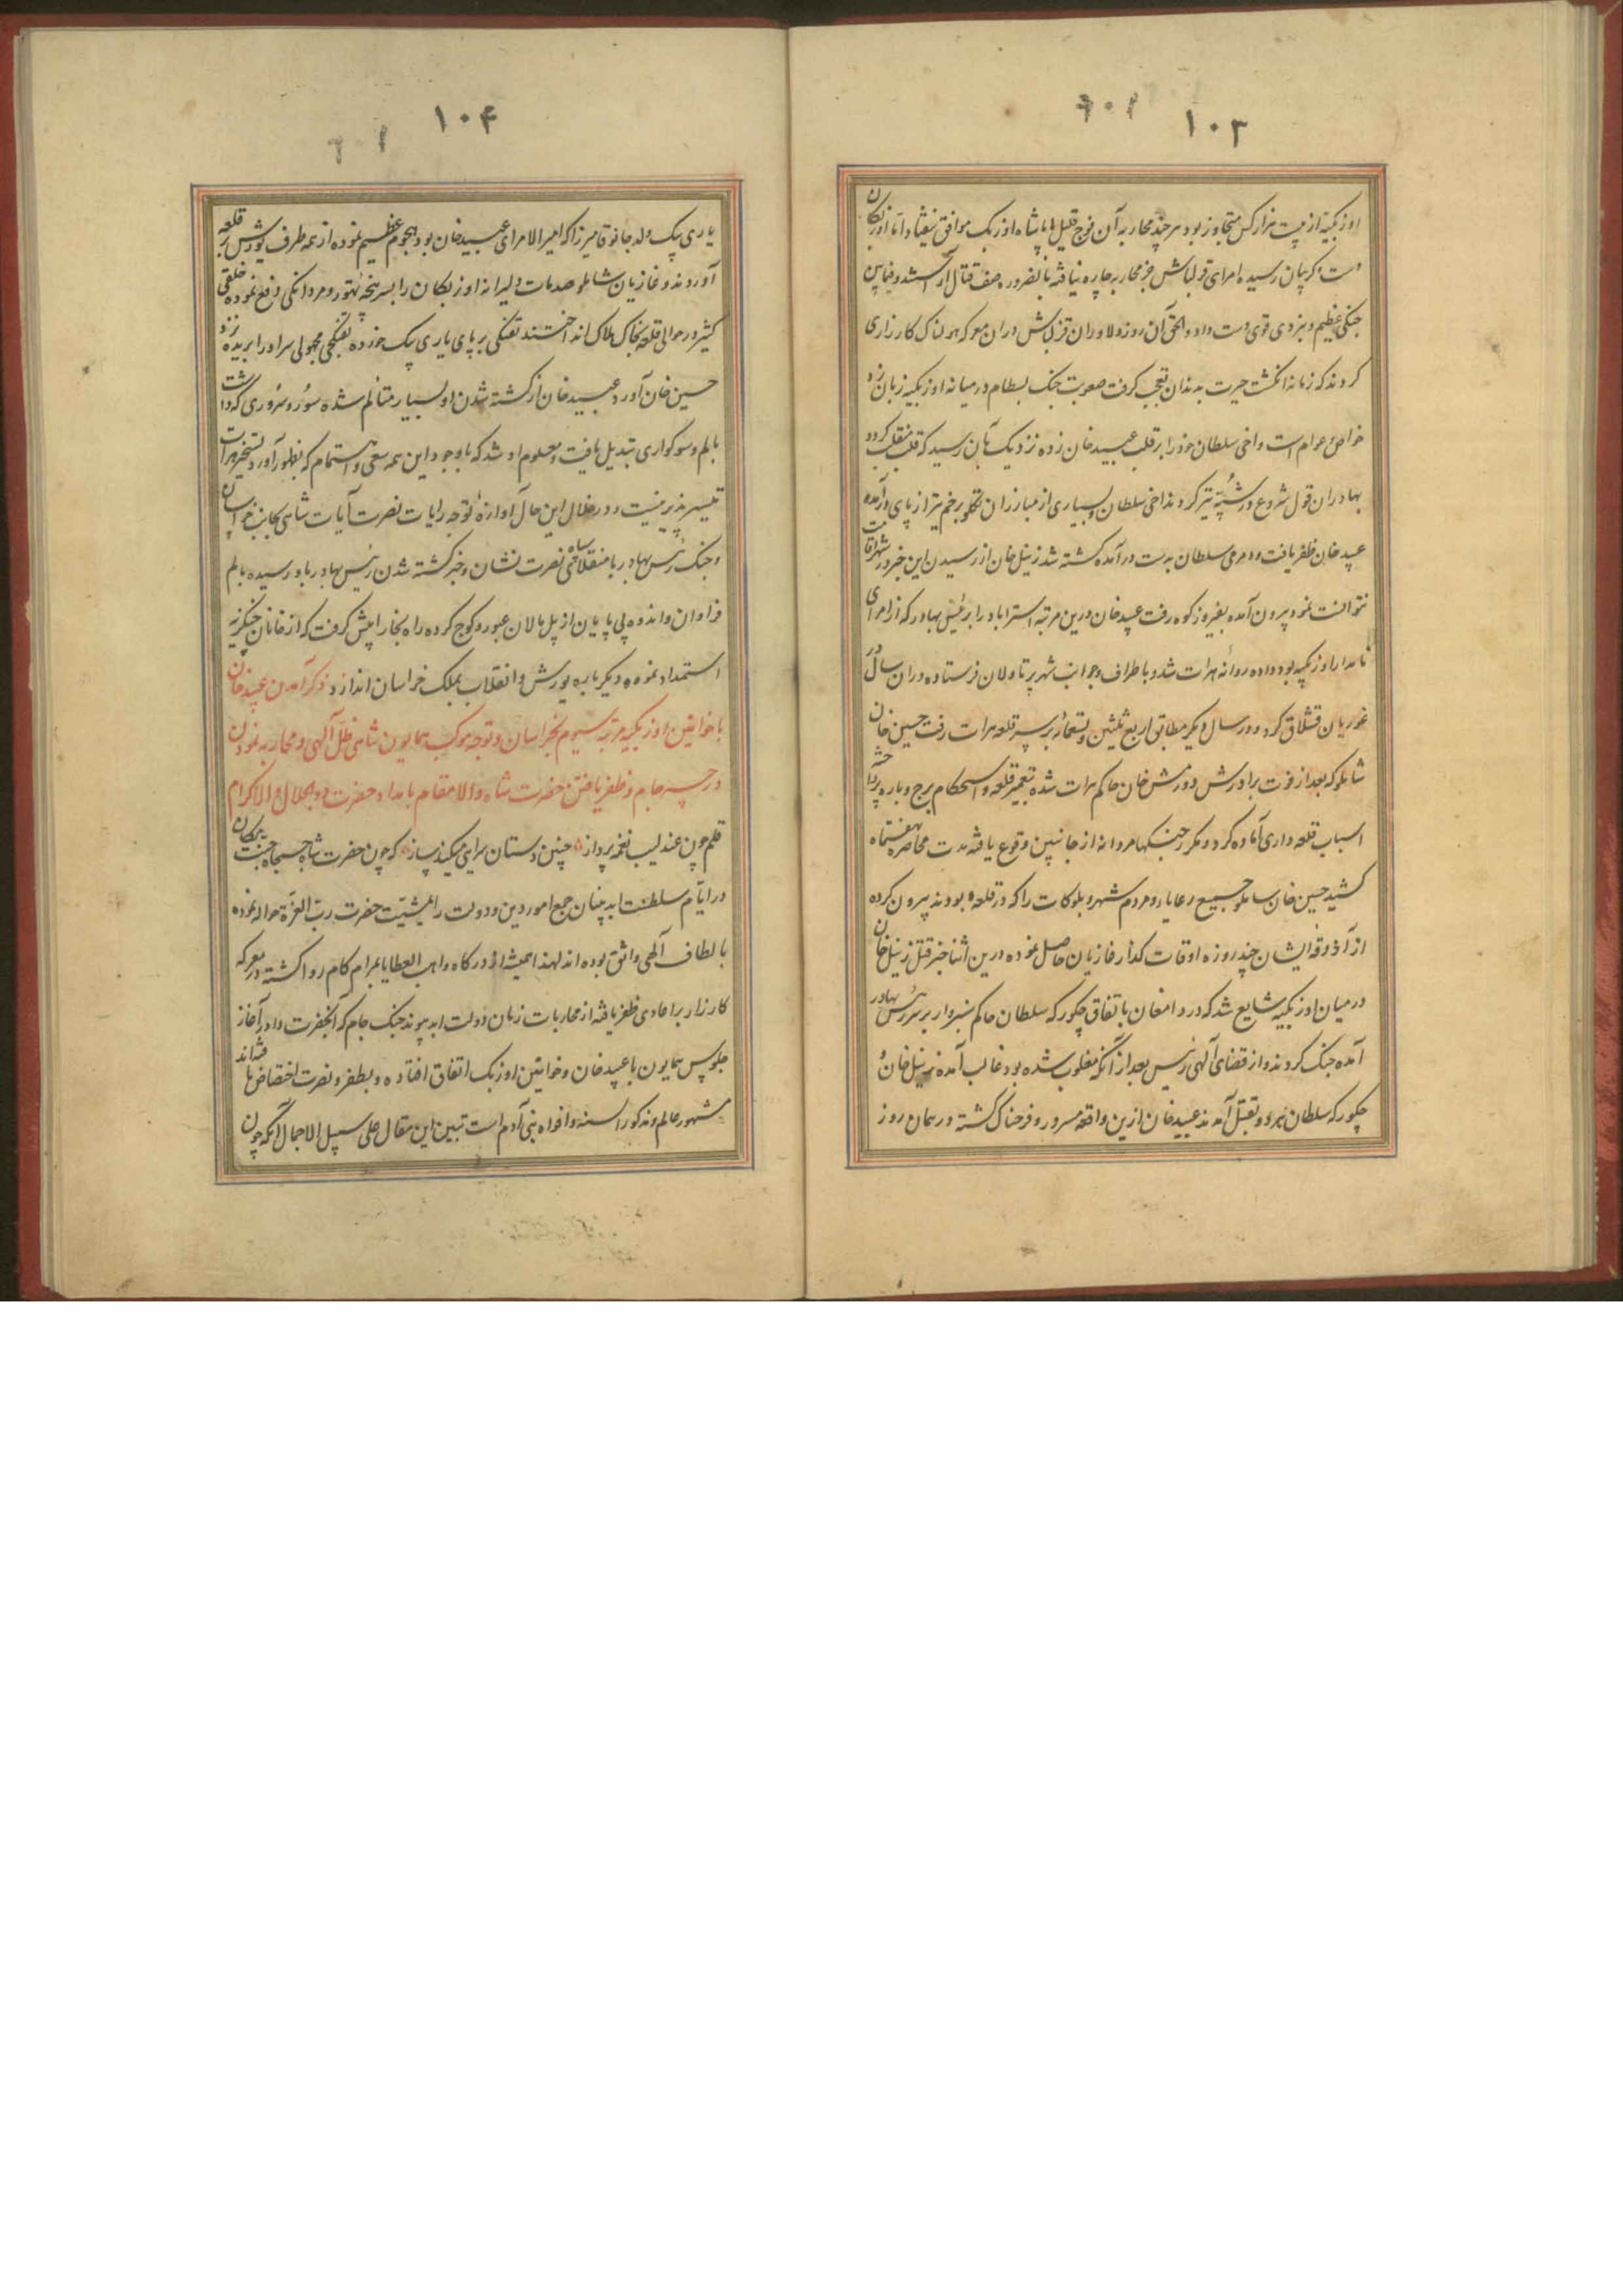 ۱۰۳
اوزبکیه از بیست هزار کس متجاوز بود هر چند محاربه آن فوج قلیل با سپاه اوزبک موافق نیفتاد اما اوزبکان
دست و گریبان رسیده امرای قزلباش جز محاربه چاره نیافته بالضروره صف قتال آراستند و فیمابین
جنگی عظیم و نبردی قوی دست داد والحق آن روز دلاوران قزلباش در آن معرکه هولناک کارزاری
کردند که زمانه انگشت حیرت بدندان تعجب گرفت صعوبت جنگ بسطام در میانه اوزبکیه زبان زد
خواص و عوام است و اخی سلطان خود را بر قلب عبید خان زده نزدیک بآن رسید که قلب منقلب گردد
بهادران قول شروع در شیبه تیر کردند اخی سلطان و بسیاری از مبارزان تکلو بزخم تیر از پای درآمده
عبید خان ظفر یافت و دمری سلطان بدست درآمده کشته شد زینل خان از رسیدن این خبر در شهر اقامت
نتوانست نمود بیرون آمده بفیروزکوه رفت عبید خان درین مرتبه استراباد را برینش بهادر که از امرای
نامدار اوزبکیه بود داده روانه هرات شد و باطراف و جوانب شهر پرتاولان فرستاده در آن سال در
غوریان قشلاق کرد و در سال دیگر مطابق اربع ثلثین و تسعمائه بر سر قلعه هرات رفت حسین خان
شاملو که بعد از فوت برادرش دورمش خان حاکم هرات شده بتعمیر قلعه و استحکام برج و باره پرداخته
اسباب قلعه داری آماده کرد و مکرر جنگها مردانه از جانبین وقوع یافته مدت محاصره بهفتماه
کشید حسین خان شاملو جمیع رعایا و مردم شهر و بلوکات را که در قلعه بودند بیرون کرده
از آذوقه ایشان چند روزه اوقات گذار غازیان حاصل نموده درین اثنا خبر قتل زینل خان
در میان اوزبکیه شایع شد که در دامغان باتفاق چکورکه سلطان حاکم سبزوار بر سر رینش بهادر
آمده جنگ کردند و از قضای آلهی رینش بعد از آنکه مغلوب شده بود غالب آمده زینل خان و
چکورکه سلطان هر دو بقتل آمدند عبید خان ازین واقعه مسرور و فرحناک گشته در همان روز
۱۰۴
یاری بیک ولد جانوقا میرزا که امیر الامرای عبید خان بود هجوم عظیم نموده از همه طرف یورش بر قلعه
آوردند و غازیان شاملو صدمات دلیرانه اوزبکان را بسرپنجه تهور و مردانگی دفع نموده خلقی
کثیر در حوالی قلعه بخاک هلاک انداختند تفنگی بر پای یاری بیک خورده تفنگچی مجهولی سر او را بریده نزد
حسین خان آورد عبید خان از کشته شدن او بسیار متالم شده سور و سروری که داشت
بالم و سوکواری تبدیل یافت و معلوم او شد که باوجود این همه سعی و اهتمام که بظهور آورد تسخیر هرات
تیسیر پذیر نیست و در خلال این حال آوازه توجه رایات نصرت آیات شاهی بجانب خراسان
و جنگ رینش بهادر با منقلای سپاه نصرت نشان و خبر کشته شدن رینش بهادر باو رسیده بالم
فراوان و اندوه بی پایان از پل مالان عبور و کوچ کرده راه بخارا پیش گرفت که از خانان چنگیزیه
استمداد نموده دیگر باره یورش و انقلاب بملک خراسان اندازد ذکر آمدن عبید خان
با خواتین اوزبکیه مرتبه سیوم بخراسان و توجه موکب همایون شاهی ظل آلهی و محاربه نمودن
در جسر جام و ظفر یافتن حضرت شاه والامقام بامداد حضرت ذوالجلال والاکرام
قلم چون عندلیب نغمه پرداز چنین دستان سرایی میکند ساز که چون حضرت شاه جمجاه جنت مکان
در ایام سلطنت ابد بنیان جمیع امور دین و دولت را بمشیت حضرت رب العزة حواله نموده
بالطاف آلهی واثق بوده اند لهذا همیشه از درگاه واهب العطایا بمرام کام روا گشته در معرکه
کارزار بر اعادی ظفر یافته از محاربات زمان دولت ابد پیوند جنگ جام که آنحضرت را در آغاز
جلوس همایون با عبید خان و خواتین اوزبک اتفاق افتاده و بظفر و نصرت اختصاص یافته اند
مشهور عالم و مذکور السنه و افواه بنی آدم است تبیین این مقال علی سبیل الاجمال آنکه چون